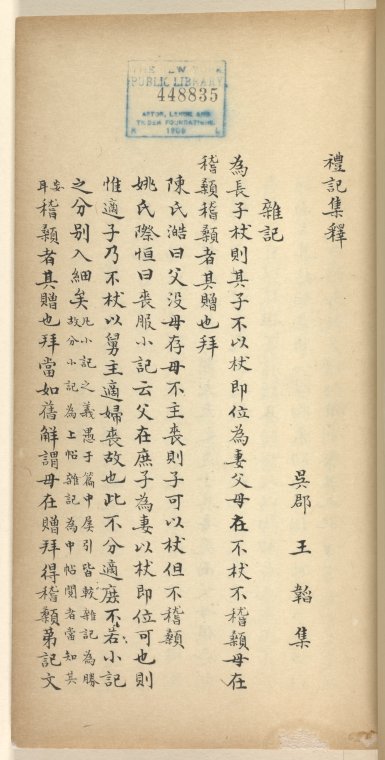 THE NEW YORK
PUBLIC LIBRARY
448835
ASTOR, LENOX AND
TILDEN FOUNDATIONS
R 1909 L
禮記集釋
吳郡 王韜 集
雜記
為長子杖則其子不以杖即位為妻父母在不杖不稽顙母在
稽顙稽顙者其贈也拜
陳氏澔曰父沒母存母不主喪則子可以杖但不稽顙
姚氏際恒曰喪服小記云父在庶子為妻以杖即位可也則
惟適子乃不杖以舅主適婦喪故也此不分適庶不若小記
之分别入細矣凡小記之義愚于篇中屡引皆較雜記為勝
故分小記為上帖雜記為中帖閱者當知其
委耳稽顙者其贈也拜當如舊解謂母在贈拜得稽顙第記文